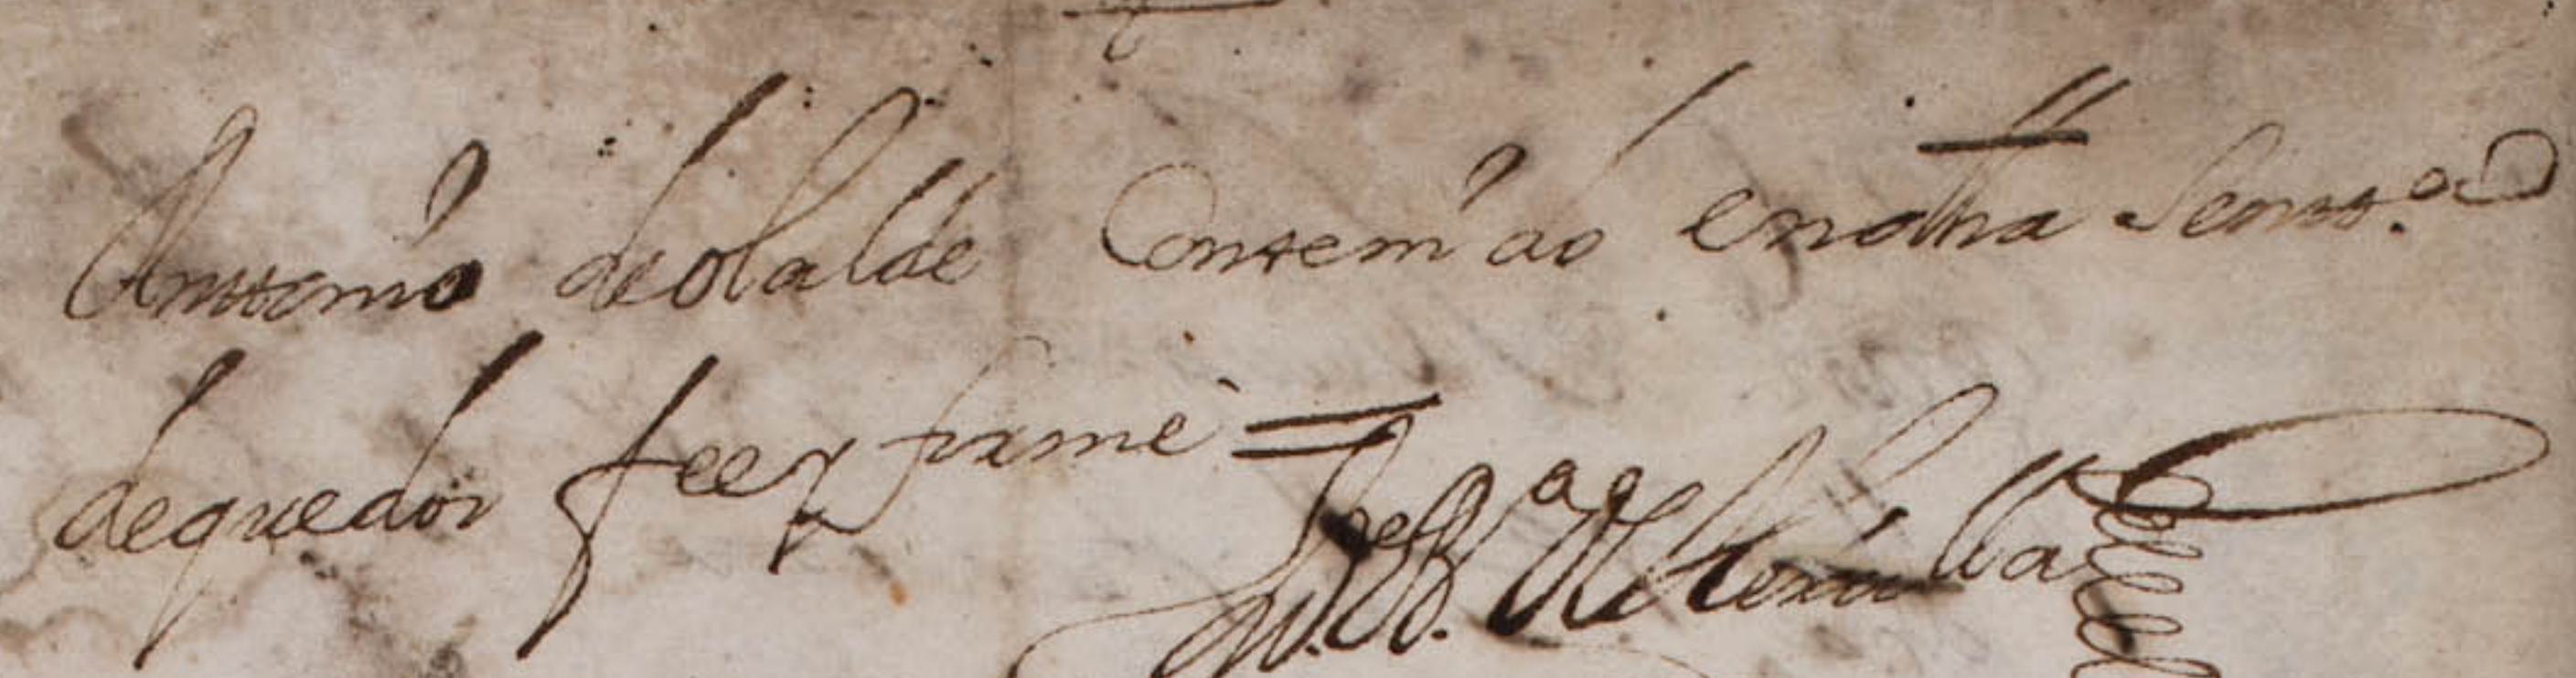 Anttonio de olalde Contenido en dha Sentt.a
de que doi fee y firme =